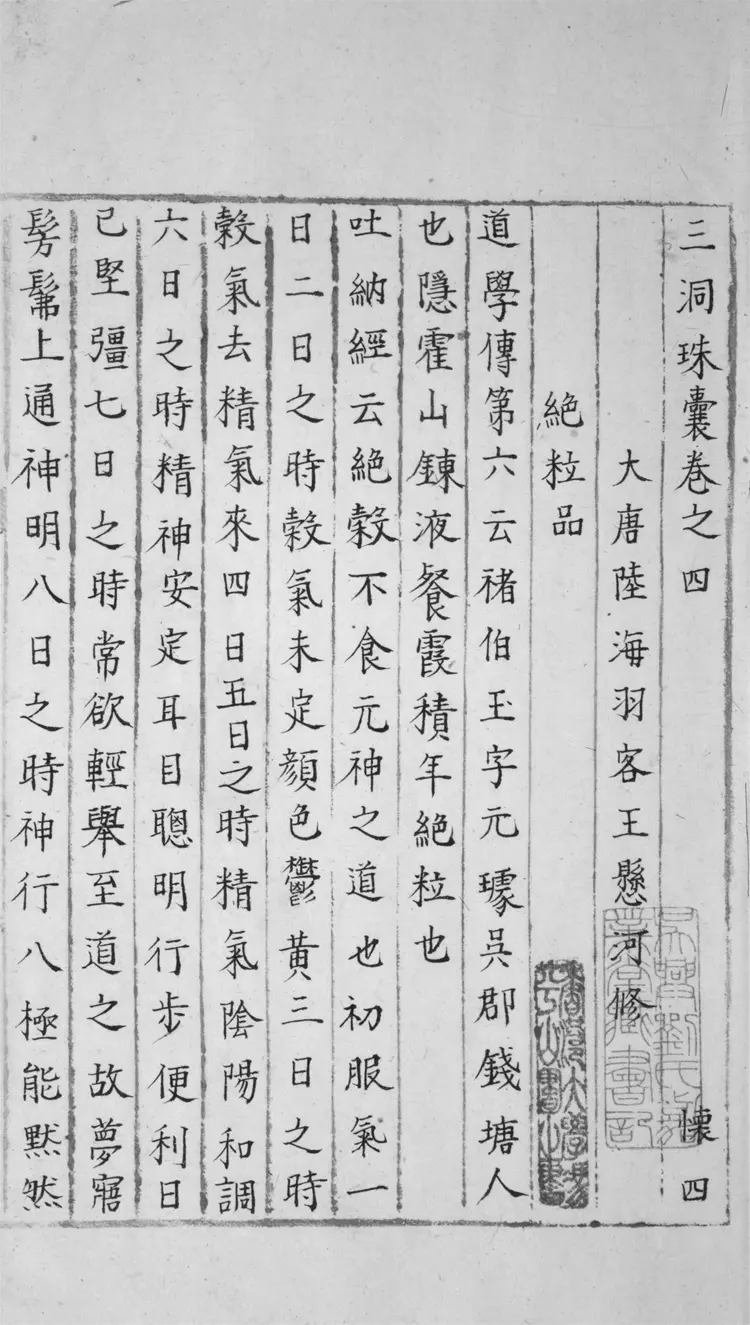 三洞珠囊卷之四
懷四
大唐陸海羽客王懸河修
絕粒品
道學傳第六云禇伯玉字元璩吳郡錢塘人
也隱霍山鍊液餐霞積年絕粒也
吐納經云絕糓不食元神之道也初服氣一
日二日之時糓氣未定顏色鬱黃三日之時
糓氣去精氣來四日五日之時精氣陰陽和調
六日之時精神安定耳目聰明行步便利日
已堅彊七日之時常欲輕舉至道之故夢寤
髣髴上通神明八日之時神行八極能黙然